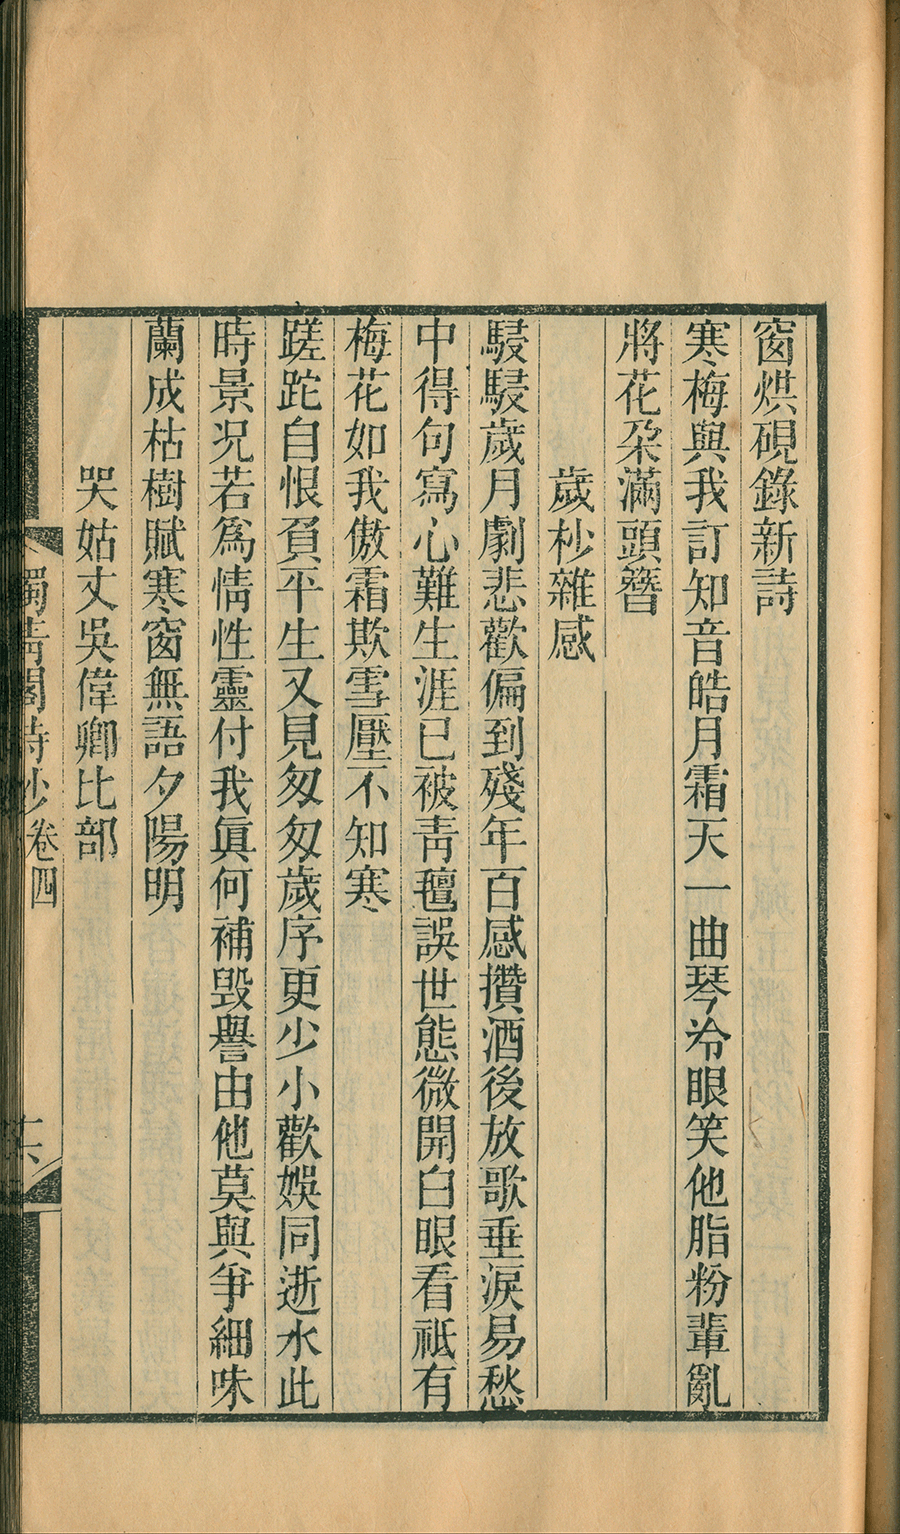 窗烘硯錄新詩
寒梅與我訂知音皓月霜天一曲琴冷眼笑他脂粉輩亂
將花朶滿頭簪
歲杪雜感
駸駸歲月劇悲歡偏到殘年百感攢酒後放歌垂淚易愁
中得句寫心難生涯已被靑氊誤世態微開白眼看祗有
梅花如我傲霜欺雪壓不知寒
蹉跎自恨負平生又見匆匆歲序更少小歡娛同逝水此
時景况若爲情性靈付我眞何補毁譽由他莫與爭細味
蘭成枯樹賦寒窗無語夕陽明
哭姑丈吳偉卿比部
獨靑閣詩鈔卷四